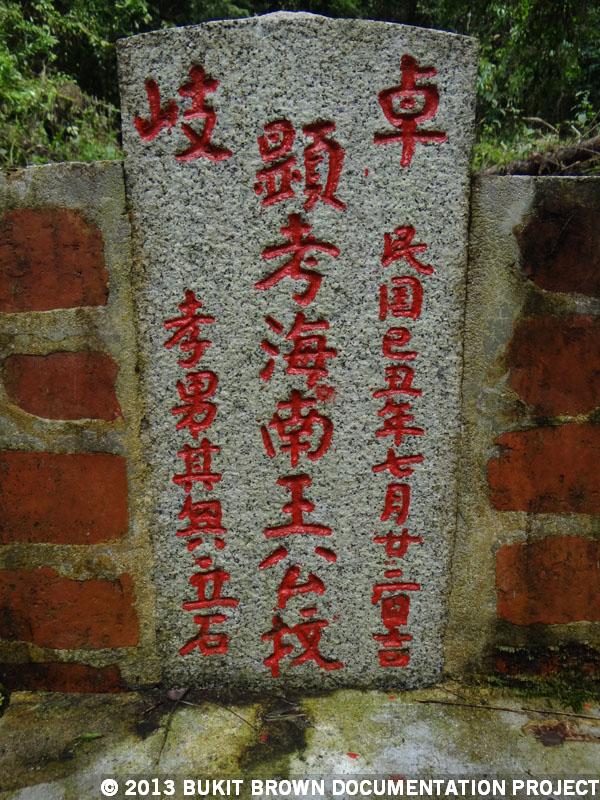 卓岐
民国己丑年七月廿二日吉
顕考海南王公坟
孝男其立石
© 2013 BUKIT BROWN DOCUMENTATION PROJECT